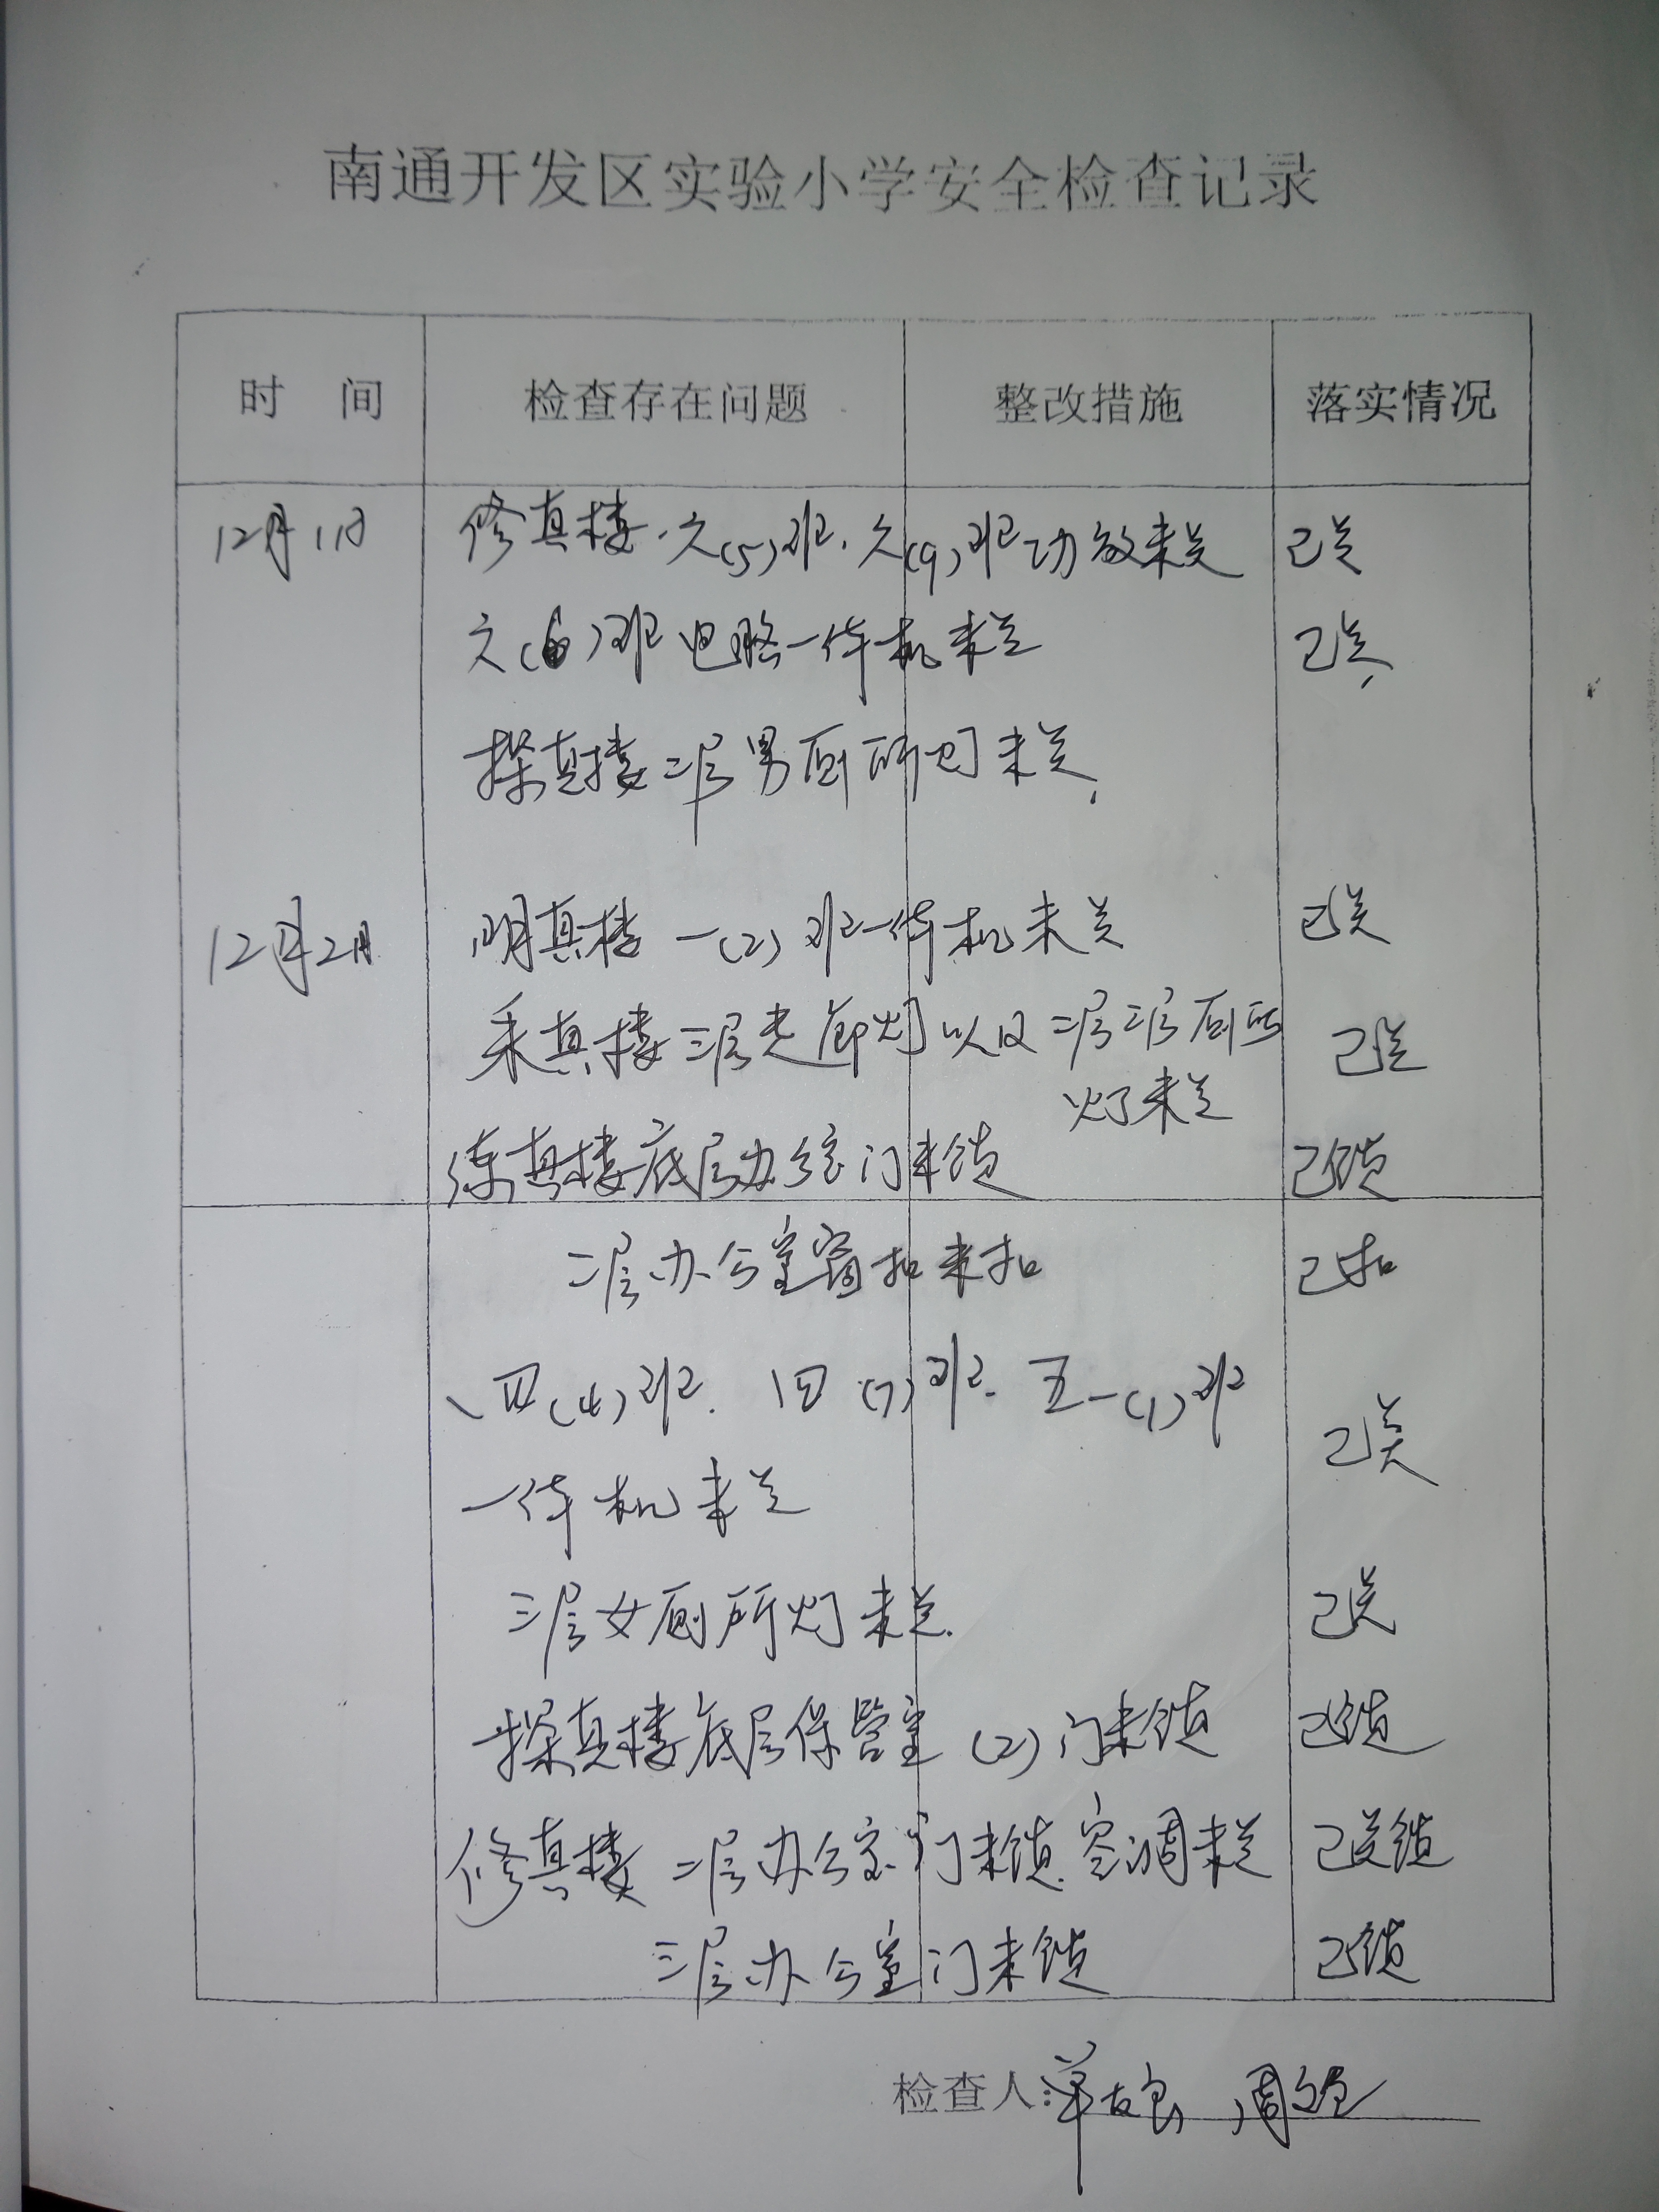 南通开发区实验小学安全检查记录
时 间 检查存在问题 整改措施 落实情况
12月1日 修真楼.六(5)班.六(9)班功放未关 已关
六(6)班电脑一体机未关 已关
探真楼二层男厕所灯未关
12月2日 明真楼一(2)班一体机未关 已关
采真楼三层走廊灯以及二层三层厕所 已关
灯未关
练真楼底层办公室门未锁 已锁
二层办公室窗扣未扣 已扣
四(4)班.四(7)班.五(1)班 已关
一体机未关
三层女厕所灯未关. 已关
探真楼底层保管室(2)门未锁 已锁
修真楼 二层办公室门未锁.空调未关 已关锁
三层办公室门未锁 已锁
检查人: